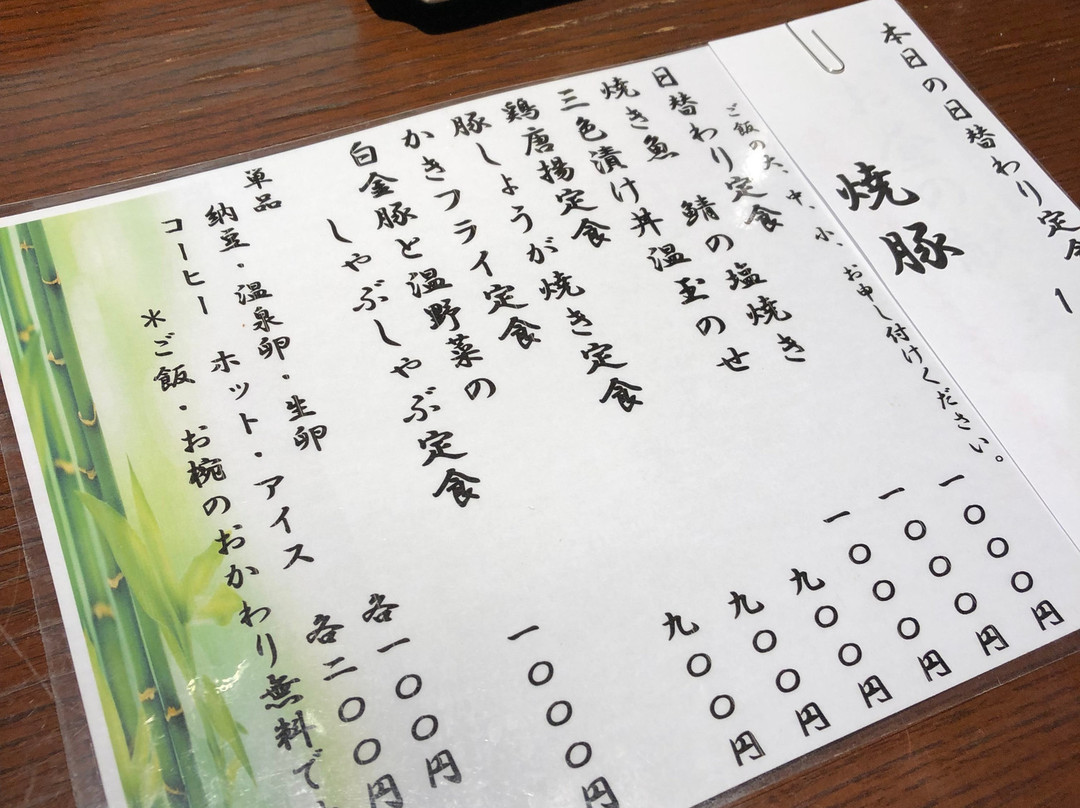 本日の日替わり定食 1
焼豚
ご飯の大、中、小、お申し付けください。
日替わり定食 一〇〇〇円
焼き魚 鯖の塩焼き 一〇〇〇円
三色漬け丼温玉のせ 一〇〇〇円
鶏唐揚定食 九〇〇円
豚しょうが焼き定食 九〇〇円
かきフライ定食 九〇〇円
白金豚と温野菜の
しゃぶしゃぶ定食 一〇〇〇円
単品
納豆・温泉卵・生卵 各一〇〇円
コーヒー ホット・アイス 各二〇〇円
＊ご飯・お椀のおかわり無料で